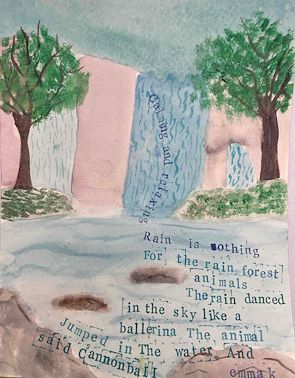 Calming and relaxing
Rain is nothing
For the rain forest
animals
Therain danced
in the sky like a
ballerina The animal
Jumped in The water. And
said Cannonball
emma k